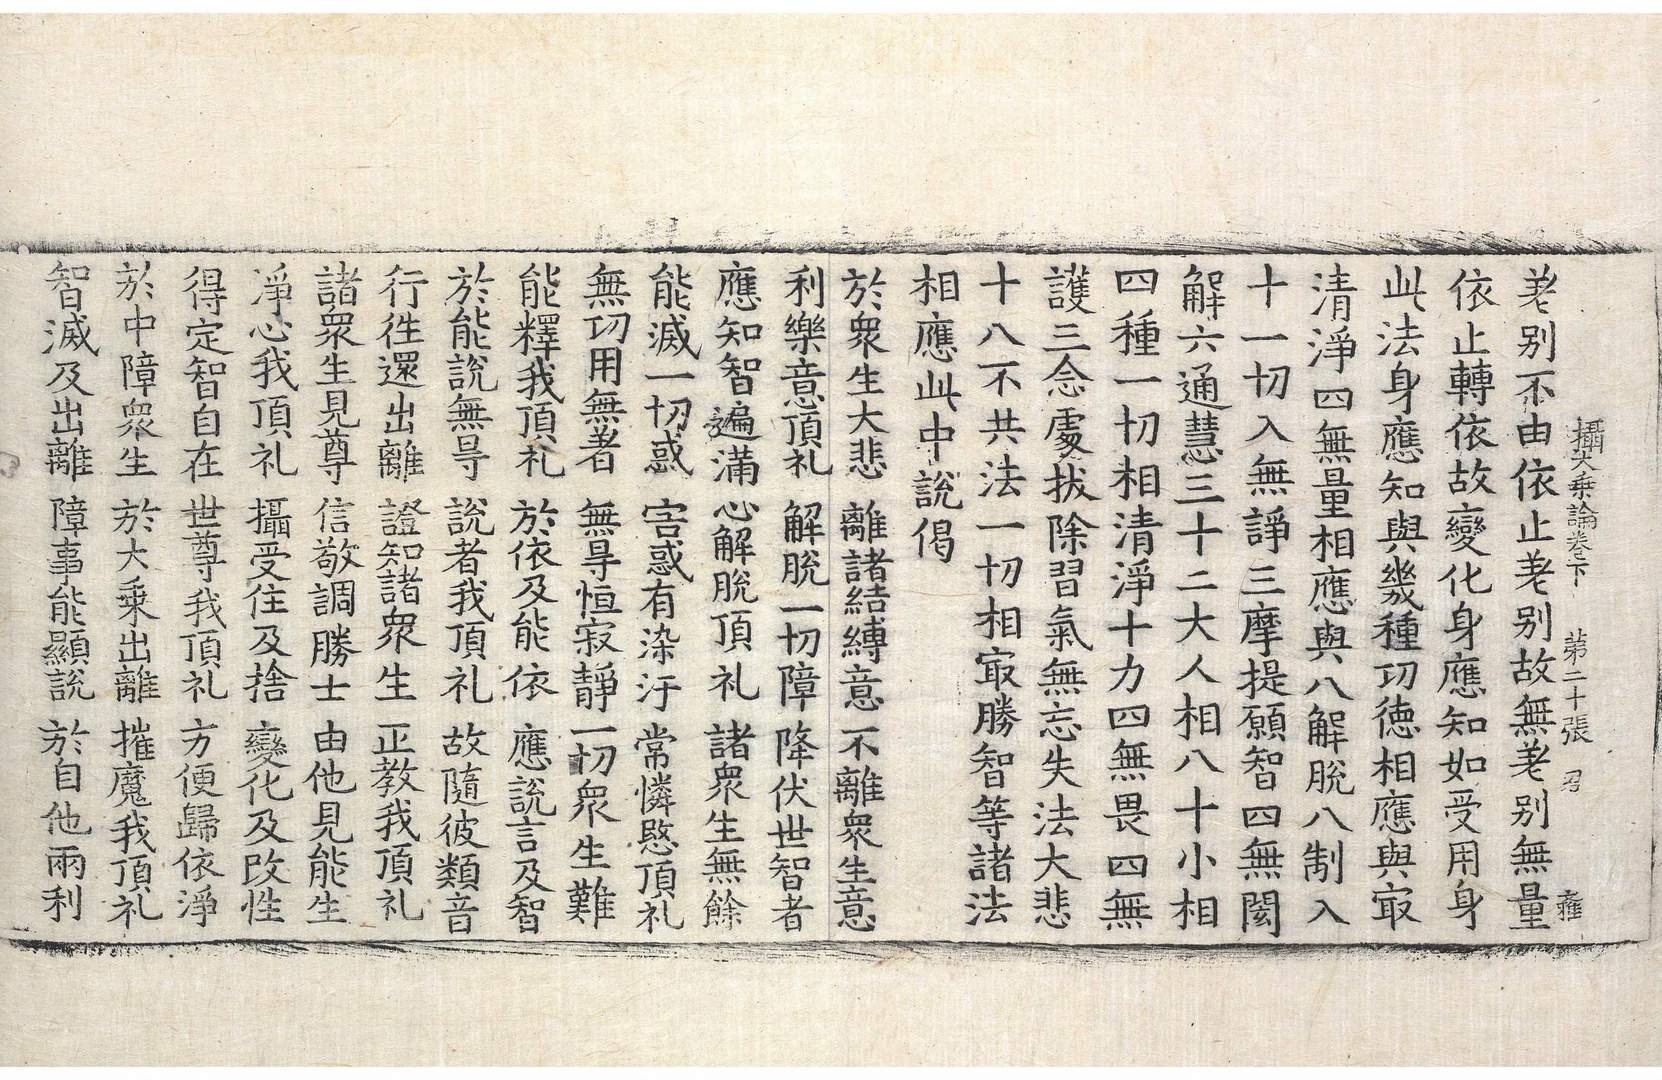 攝大乗論卷下　第二十張　刃　雍
差别不由依止差别故無差别無量
依止轉依故變化身應知如受用身
此法身應知與幾種功徳相應與㝡
清淨四無量相應與八解脫八制入
十一切入無諍三摩提願智四無閡
解六通慧三十二大人相八十小相
四種一切相清淨十力四無畏四無
護三念處拔除習氣無忘失法大悲
十八不共法一切相㝡勝智等諸法
相應此中說偈
於衆生大悲　離諸結縛意　不離衆生意
利樂意頂礼　解脫一切障　降伏世智者
應知智遍滿　心解脫頂礼　諸衆生無餘
能滅一切惑　害惑有染汙　常憐愍頂礼
無功用無著　無㝵恒寂靜　一切衆生難
能釋我頂礼　於依及能依　應說言及智
於能說無㝵　說者我頂礼　故隨彼類音
行徃還出離　證知諸衆生　正教我頂礼
諸衆生見尊　信敬調勝士　由他見能生
淨心我頂礼　攝受住及捨　變化及改性
得定智自在　世尊我頂礼　方便歸依淨
於中障衆生　於大乗出離　摧魔我頂礼
智滅及出離　障事能顯說　於自他兩利